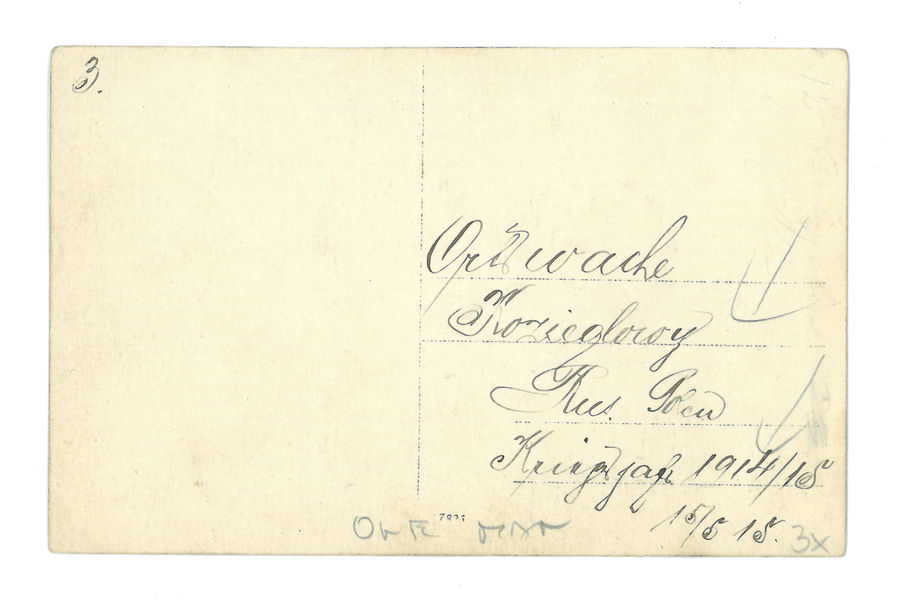 3.
Ortswache
Koziegłowy
Rus. Polen
Kriegsjahr 1914/15
15/5 15.
3x